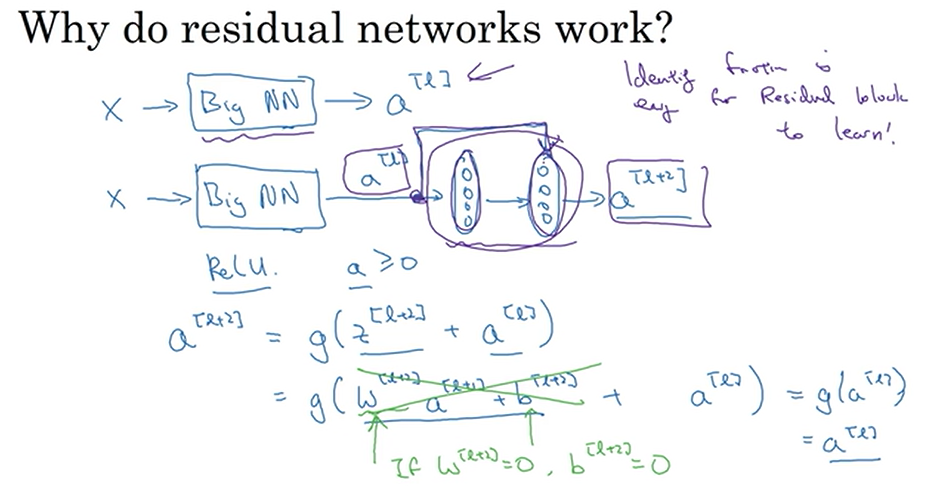 Why do residual networks work?
X → Big NN → a^[l] ←
Identity function is
easy for Residual block
to learn!
X → Big NN a^[l] → → → a^[l+2]
ReLU. a ≥ 0
a^[l+2] = g(z^[l+2] + a^[l])
= g(W^[l+2] a^[l+1] + b^[l+2] + a^[l]) = g(a^[l])
= a^[l]
If W^[l+2] = 0, b^[l+2] = 0